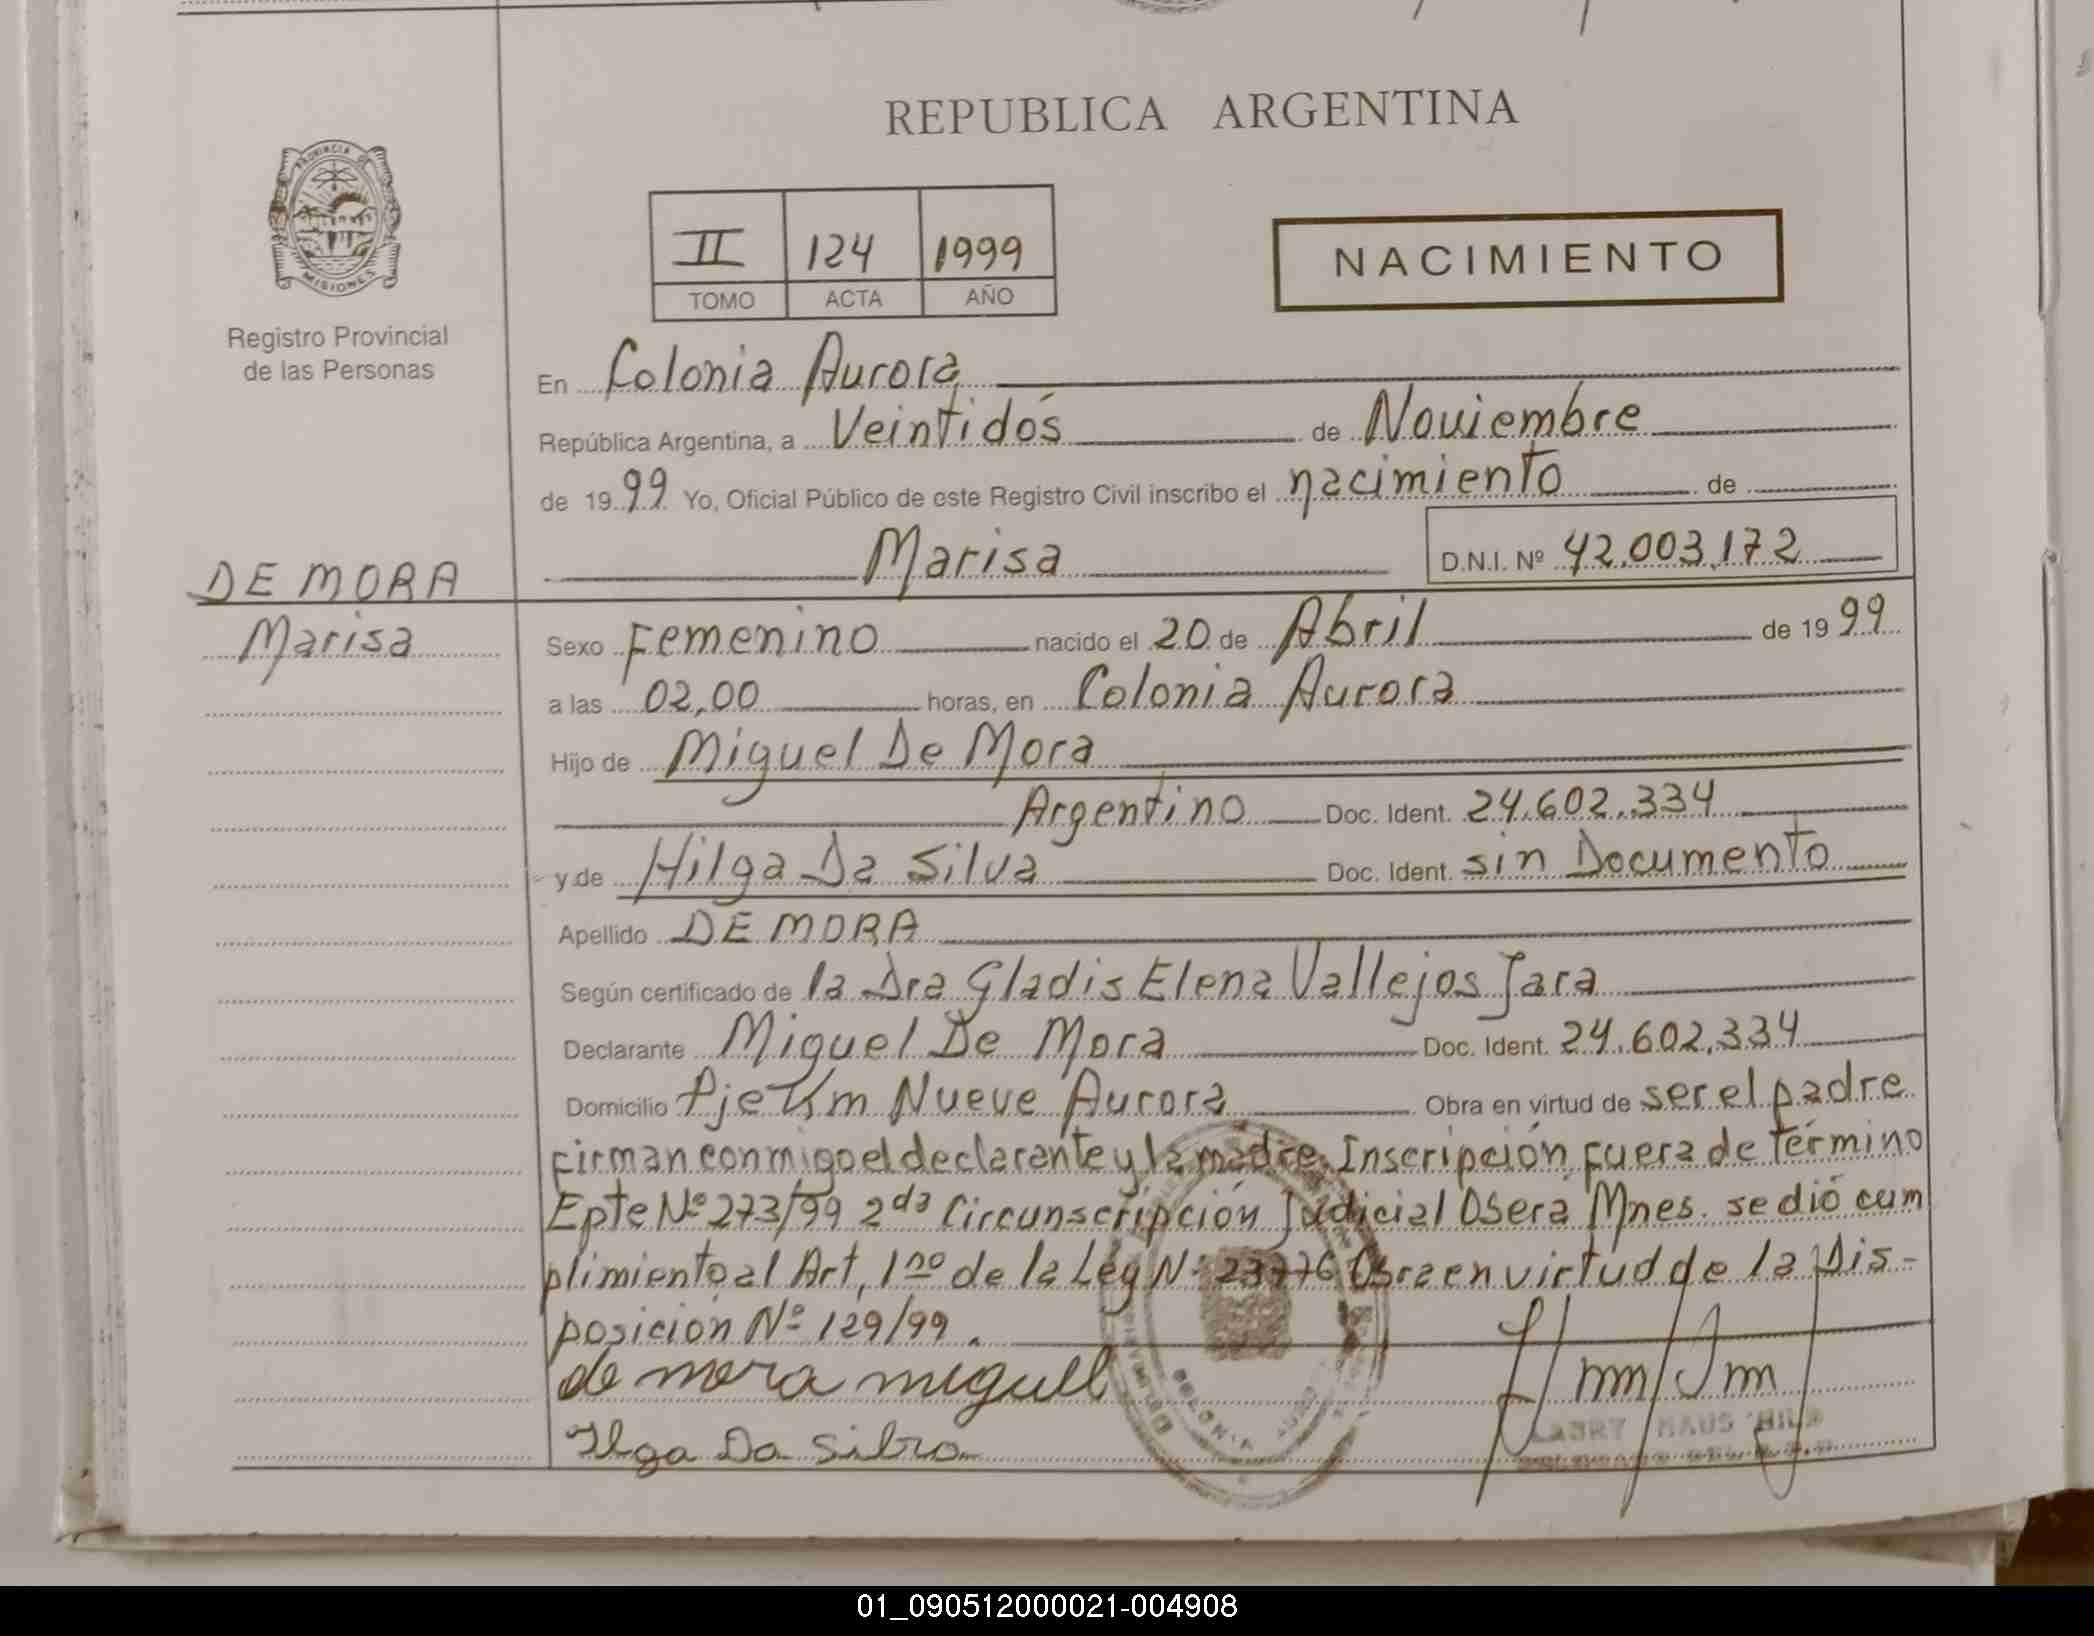 REPUBLICA ARGENTINA
PROVINCIA DE
MISIONES
Registro Provincial
de las Personas
II 124 1999
TOMO ACTA AÑO
NACIMIENTO
En Colonia Aurora
República Argentina, a Veintidós de Noviembre
de 1999 Yo, Oficial Público de este Registro Civil inscribo el nacimiento de
Marisa D.N.I. Nº 42.003.172
DE MORA
Marisa
Sexo Femenino nacido el 20 de Abril de 1999
a las 02,00 horas, en Colonia Aurora
Hijo de Miguel De Mora
Argentino Doc. Ident. 24.602.334
y de Hilga Da Silva Doc. Ident. sin Documento
Apellido DE MORA
Según certificado de la Dra Gladis Elena Vallejos Jara
Declarante Miguel De Mora Doc. Ident. 24.602.334
Domicilio Pje Km Nueve Aurora Obra en virtud de ser el padre
firman conmigo el declarante y la madre. Inscripción fuera de término
Epte Nº 273/99 2da Circunscripción Judicial Oberá Mnes. se dió cum
plimiento al Art, 1no de la Ley Nº 23776 Obra en virtud de la Dis-
posición Nº 129/99.
de mora miguel
Ilga Da Silva
COLONIA
01_090512000021-004908